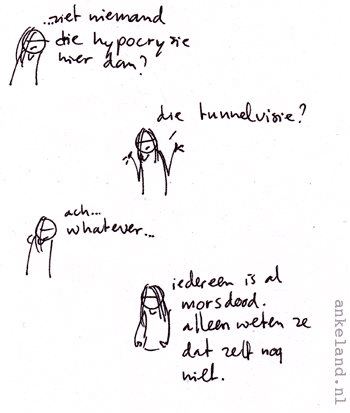 ...ziet niemand
die hypocrysie
hier dan?
die tunnelvisie?
ach...
whatever...
iedereen is al
morsdood.
alleen weten ze
dat zelf nog
niet.
ankeland.nl